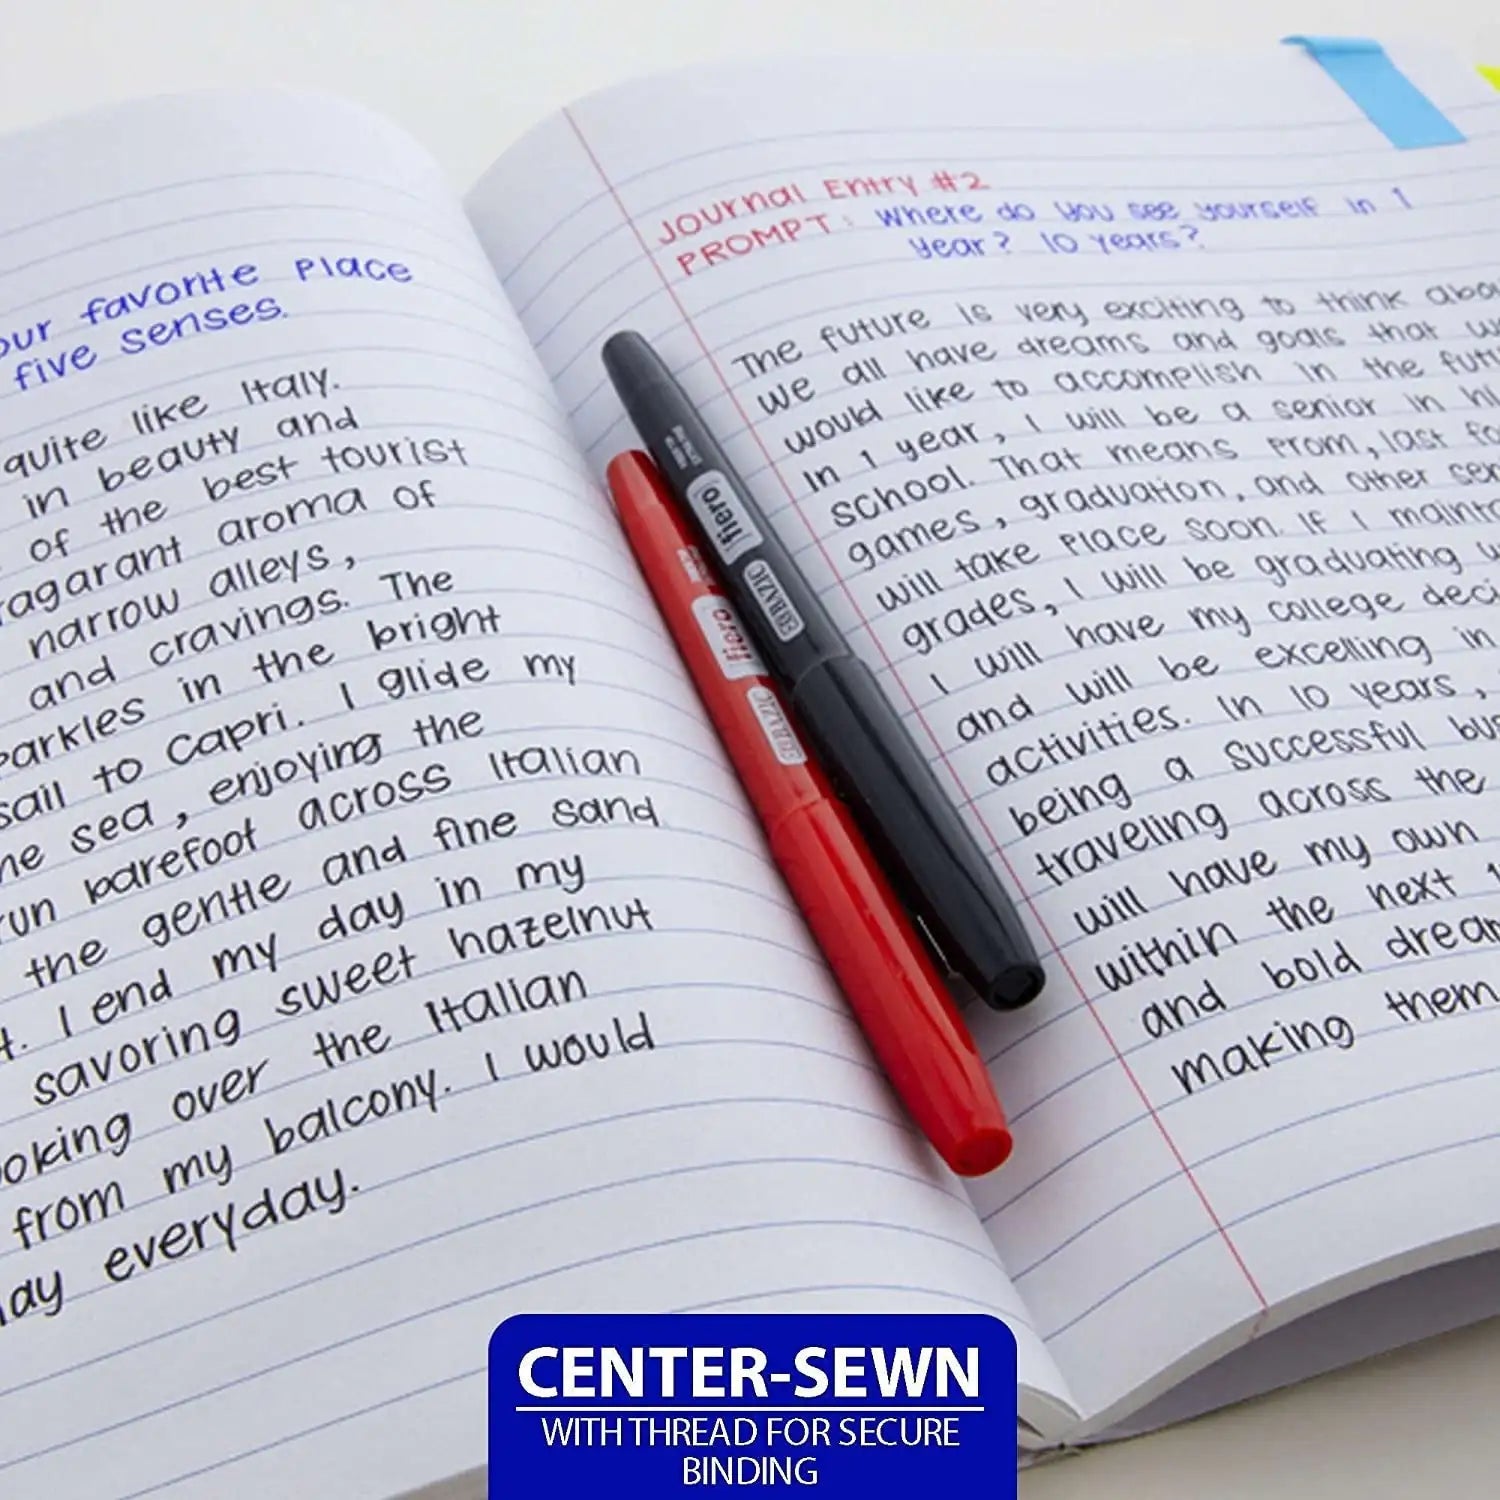 our favorite place
five senses.
quite like Italy.
in beauty and
of the best tourist
ragarant aroma of
narrow alleys,
and cravings. The
parkles in the bright
sail to Capri. I glide my
he sea, enjoying the
run barefoot across Italian
the gentle and fine sand
t. I end my day in my
savoring sweet hazelnut
ooking over the Italian
from my balcony. I would
ay everyday.
Journal Entry #2
PROMPT: Where do you see yourself in 1
year? 10 years?
The future is very exciting to think abou
we all have dreams and goals that w
would like to accomplish in the futu
In 1 year, I will be a senior in hi
school. That means prom, last fo
games, graduation, and other sen
will take place soon. If I mainta
grades, I will be graduating w
I will have my college deci
and will be excelling in
activities. In 10 years,
being a successful bus
traveling across the
will have my own
within the next 1
and bold drea
making them
fiero
fiero
CENTER-SEWN
WITH THREAD FOR SECURE
BINDING